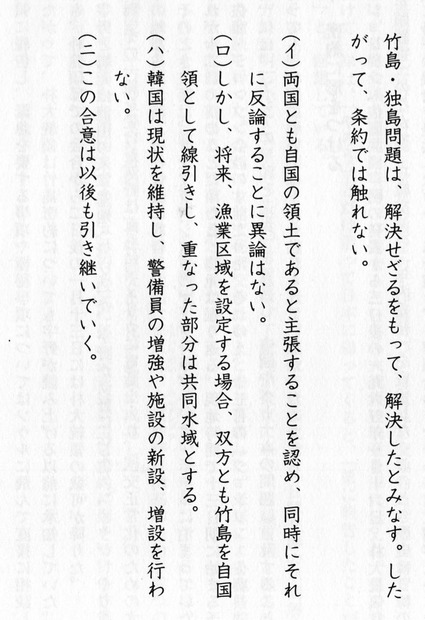 竹島・独島問題は、解決せざるをもって、解決したとみなす。した
がって、条約では触れない。
(イ)両国とも自国の領土であると主張することを認め、同時にそれ
に反論することに異論はない。
(ロ)しかし、将来、漁業区域を設定する場合、双方とも竹島を自国
領として線引きし、重なった部分は共同水域とする。
(ハ)韓国は現状を維持し、警備員の増強や施設の新設、増設を行わ
ない。
(ニ)この合意は以後も引き継いでいく。